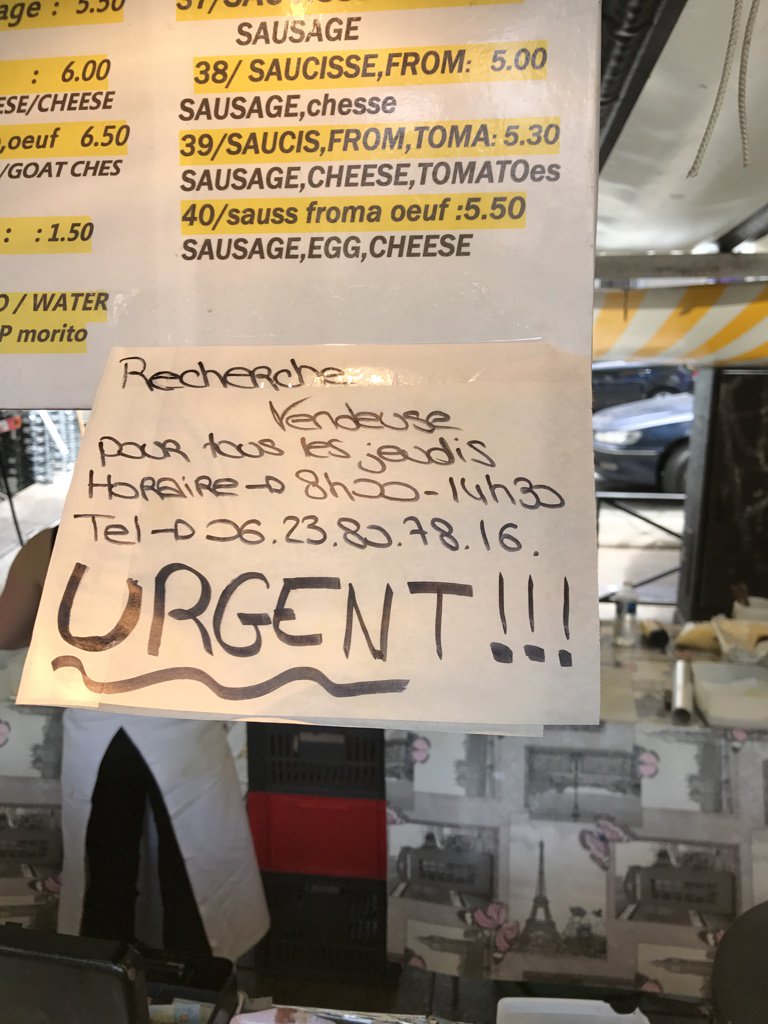 age : 5.50
: 6.00
ESE/CHEESE
,oeuf 6.50
/GOAT CHES
: : 1.50
O / WATER
P morito
SAUSAGE
38/ SAUCISSE,FROM: 5.00
SAUSAGE,chesse
39/SAUCIS,FROM,TOMA: 5.30
SAUSAGE,CHEESE,TOMATOes
40/sauss froma oeuf :5.50
SAUSAGE,EGG,CHEESE
Recherche
Vendeuse
pour tous les jeudis
Horaire → 8h00 - 14h30
Tel → 06.23.80.78.16.
URGENT !!!